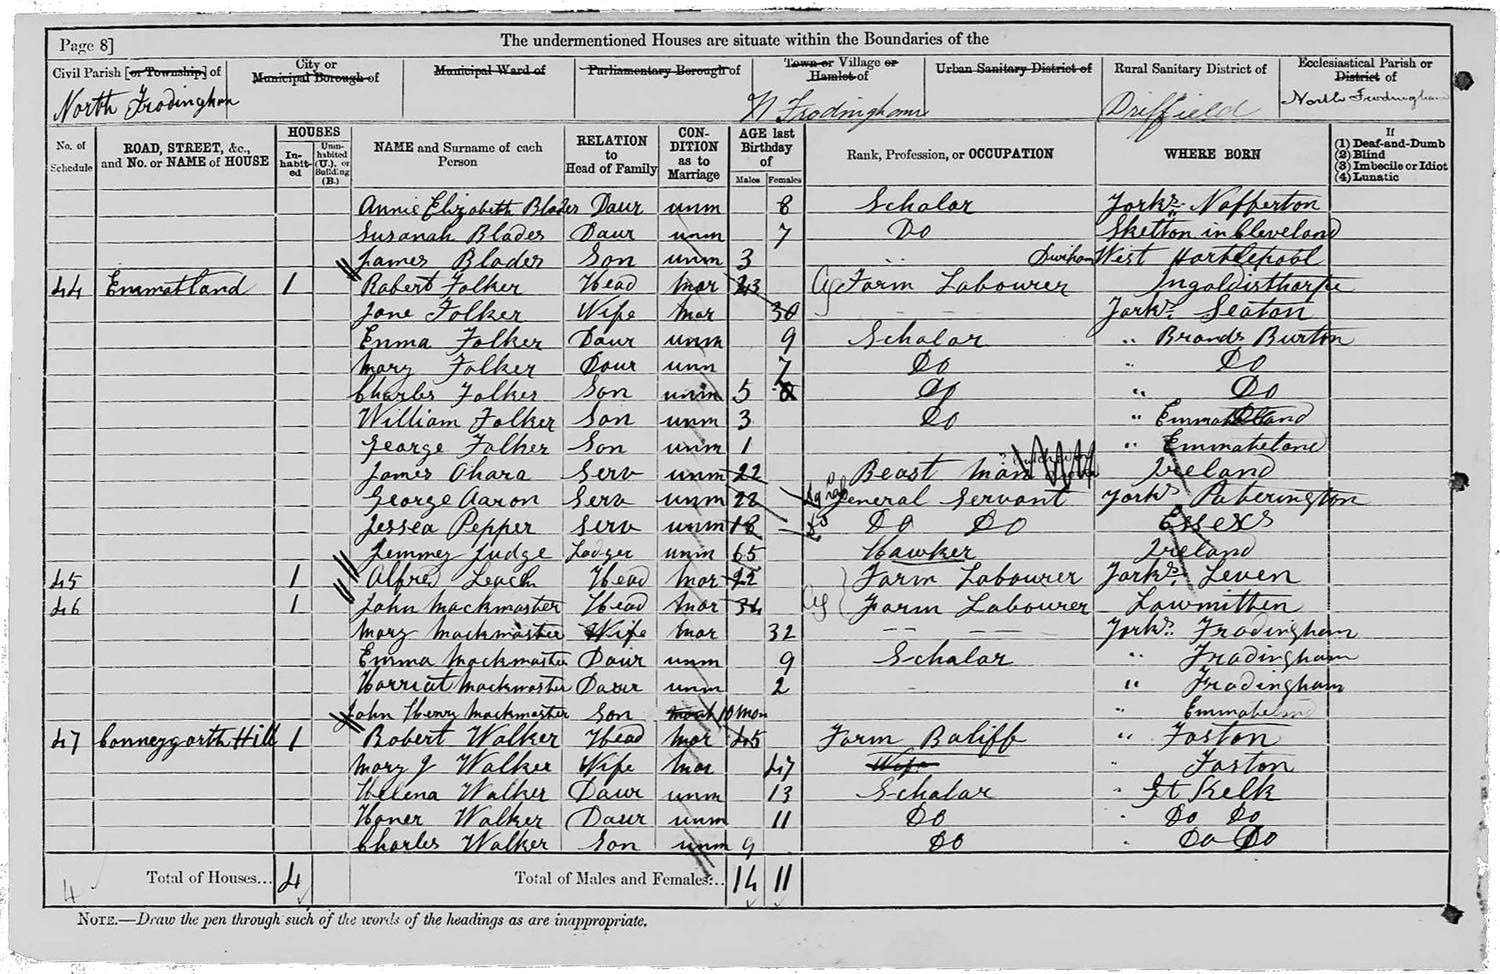 Page 8]
The undermentioned Houses are situate within the Boundaries of the
Civil Parish [or Township] of
City or Municipal Borough of
Municipal Ward of
Parliamentary Borough of
Town or Village or Hamlet of
Urban Sanitary District of
Rural Sanitary District of
Ecclesiastical Parish or District of
North Frodingham
N Frodingham
Driffield
North Frodingham
No. of Schedule
ROAD, STREET, &c., and No. or NAME of HOUSE
HOUSES
In-habit-ed
Unin-habited (U.), or Building (B.)
NAME and Surname of each Person
RELATION to Head of Family
CON-DITION as to Marriage
AGE last Birthday of
Males
Females
Rank, Profession, or OCCUPATION
WHERE BORN
If
(1) Deaf-and-Dumb
(2) Blind
(3) Imbecile or Idiot
(4) Lunatic
Annie Elizabeth Blades Daur unm 8 Scholar Yorks. Nafferton
Susanah Blades Daur unm 7 Do Skelton in Cleveland
James Blades Son unm 3 Durham West Hartlepool
44 Emmotland 1 Robert Folker Head Mar Ag Farm Labourer Ingoldisthorpe
Jane Folker Wife Mar 30 Yorks. Seaton
Emma Folker Daur unm 9 Scholar " Brands Burton
Mary Folker Daur unm 7 Do " Do
Charles Folker Son unm 5 Do " Do
William Folker Son unm 3 Do "
George Folker Son unm 1 "
James Ohara Serv unm 22 Beast Man Ireland
George Aaron Serv unm 22 General Servant Yorks Paterington
Jessea Pepper Serv unm 18 Do Do Essex
Jemmey Judge Lodger unm 65 Hawker Ireland
45 1 Alfred Leach Head Mar 22 Farm Labourer Yorks. Leven
46 1 John Mackmaster Head Mar 34 Ag Farm Labourer Lawmitten
Mary Mackmaster Wife Mar 32 Yorks. Frodingham
Emma Mackmaster Daur unm 9 Scholar " Frodingham
Harriat Mackmaster Daur unm 2 " Frodingham
John Henry Mackmaster Son 10 Mon "
47 Conneygarth Hill 1 Robert Walker Head Mar 45 Farm Baliff " Foston
Mary J Walker Wife Mar 47 Wife " Foston
Helena Walker Daur unm 13 Scholar " Gt Kelk
Honer Walker Daur unm 11 Do " Do Do
Charles Walker Son unm 9 Do " Do Do
4
Total of Houses... 4
Total of Males and Females... 14 11
NOTE.—Draw the pen through such of the words of the headings as are inappropriate.